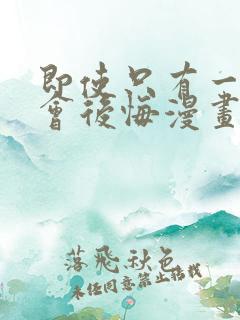 即使只有一
會後悔漫畫
落飛秋色
未经同意禁止搭载